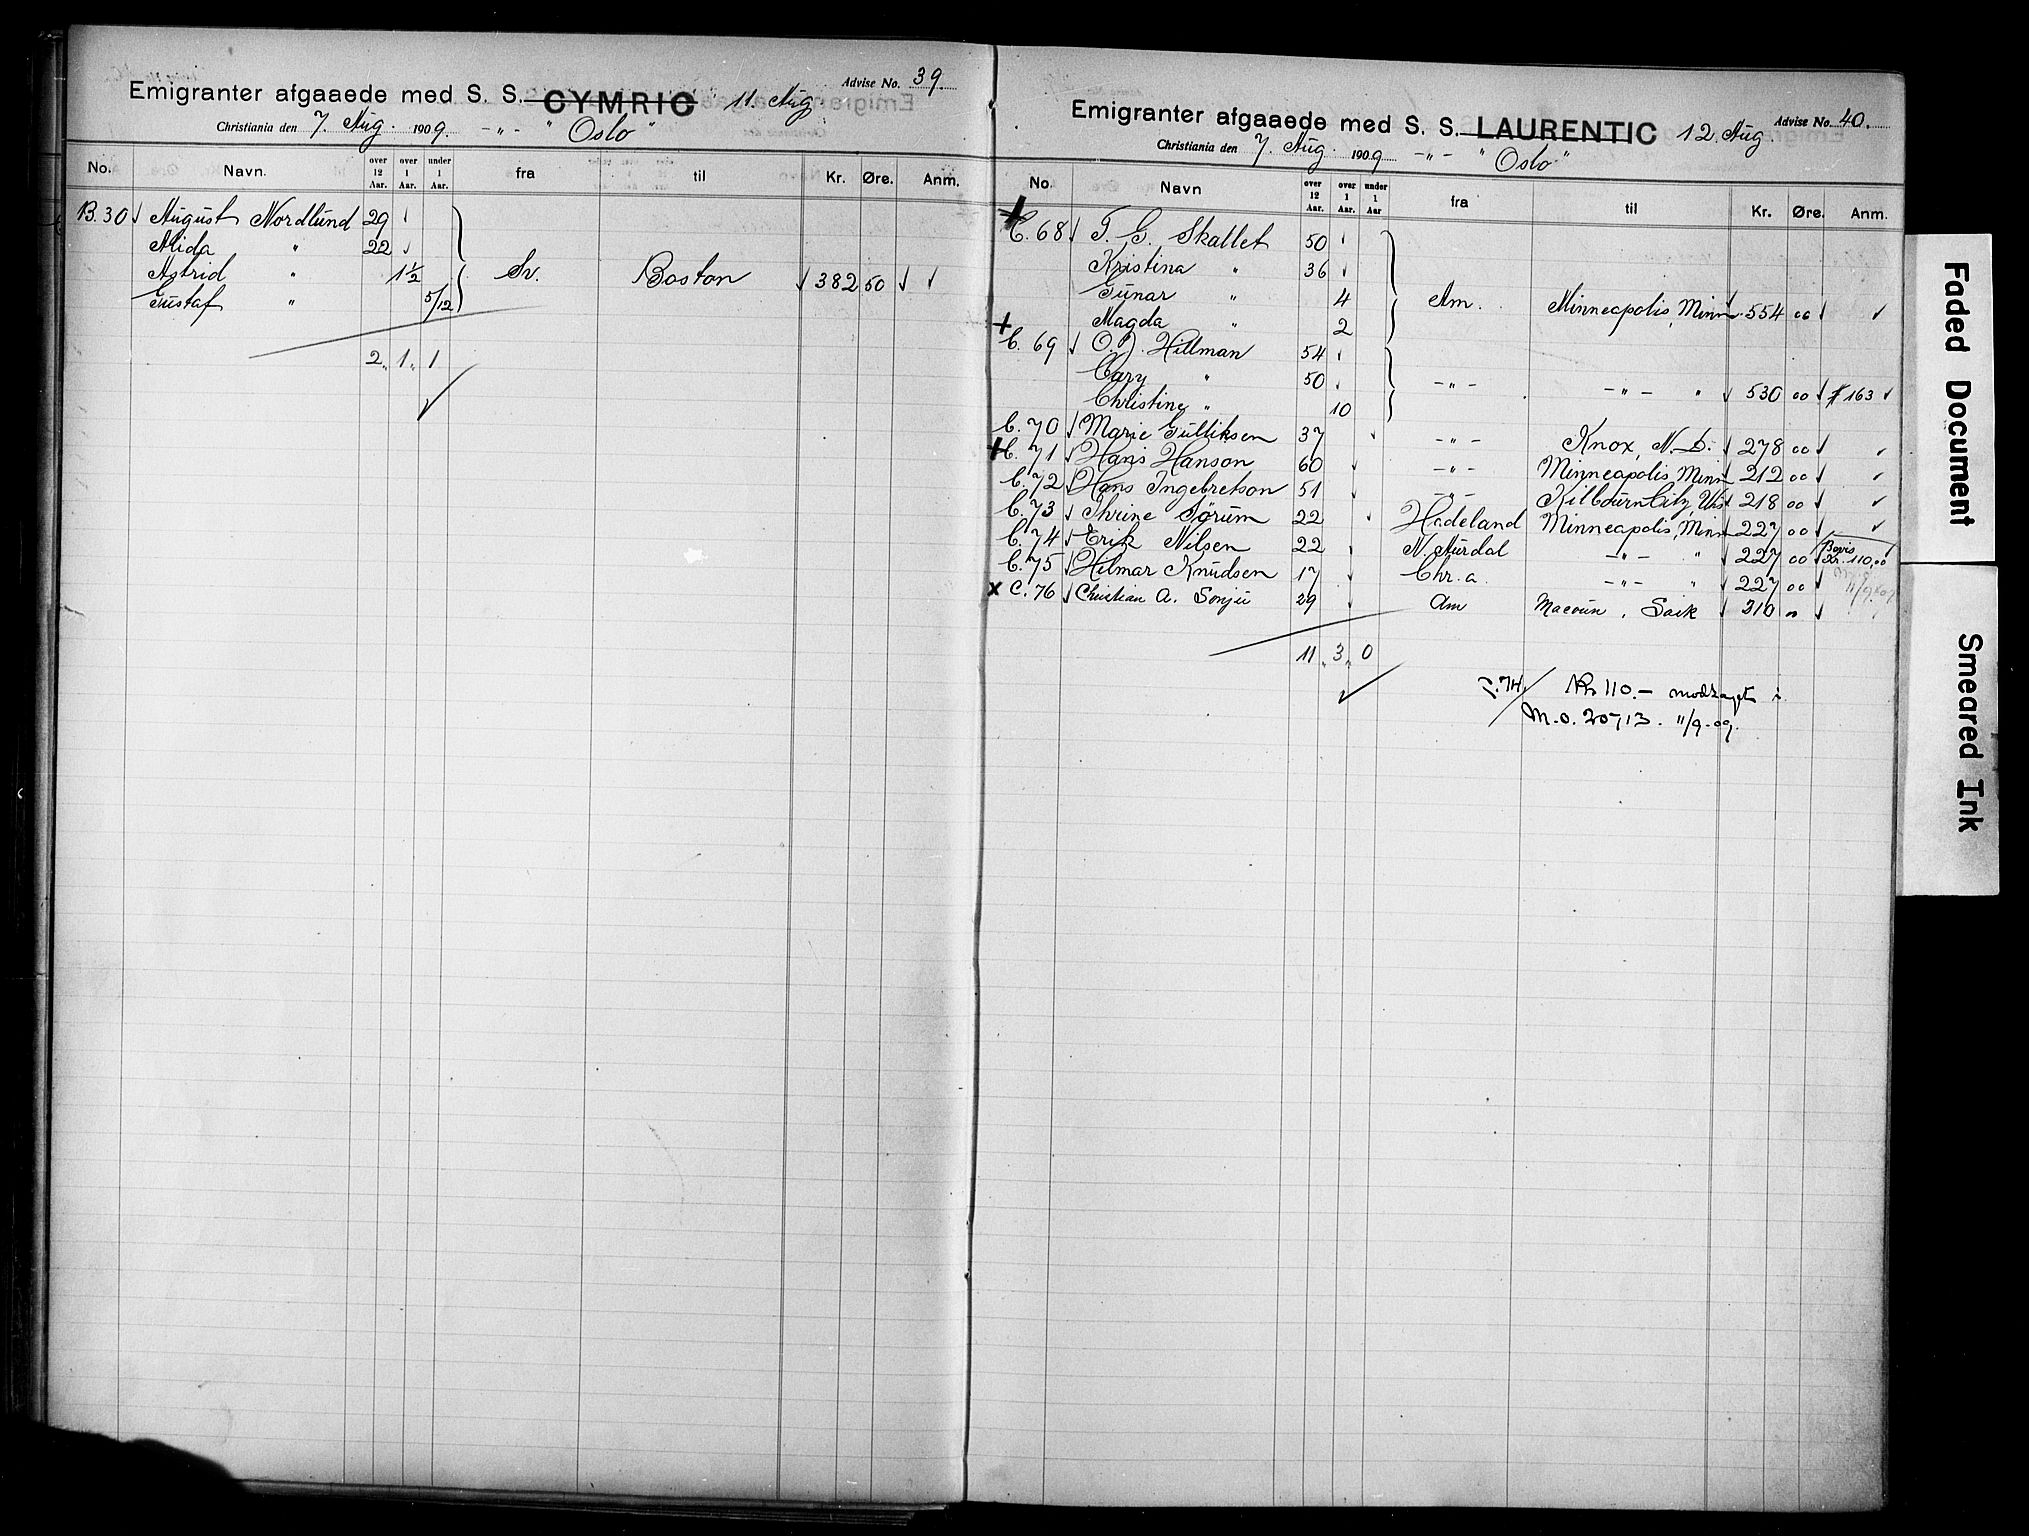 Advise No. 39
Emigranter afgaaede med S. S. CYMRIC 11. Aug
Christiania den 7. Aug. 1909. -„- "Oslo"
No. Navn. over 12 Aar. over 1 Aar. under 1 Aar. fra til Kr. Øre. Anm.
B. 30 August Nordlund 29
Alida " 22
Astrid " 1½ Sv. Boston 382 50
Gustaf " 5/12
2 „ 1 „ 1
Advise No. 40.
Emigranter afgaaede med S. S. LAURENTIC 12 Aug.
Christiania den 7. Aug. 1909 -„- "Oslo"
No. Navn over 12 Aar. over 1 Aar. under 1 Aar fra til Kr. Øre. Anm.
C. 68 T. G. Skallet 50
Kristina " 36
Gunar " 4 Am. Minneapolis, Minn. 554 00
Magda " 2
C. 69 O. J. Hillman 54
Cary " 50 -„- -„- " 530 00 $ 163
Christine " 10
C. 70 Marie Gulliksen 37 -„- Knox, N. D. 278 00
C. 71 Hans Hanson 60 -„- Minneapolis, Minn 212 00
C. 72 Hans Ingebretson 51 -„- Kilbourn City, Wis 218 00
C. 73 Thrine Sørum 22 Hadeland Minneapolis, Minn 227 00
C. 74 Erik Nilsen 22 N. Aurdal -„- " 227 00 Bevis Kr. 110,00
C. 75 Hilmar Knudsen 17 Chr.a. -„- " 227 00 11/9.09
C. 76 Christian A. Sonju 29 Am Macoun, Sask 210 "
11 „ 3 „ 0
C. 74. Kr 110.- modtaget i
M.O. 20713. 11/9-09.
Faded Document
Smeared Ink